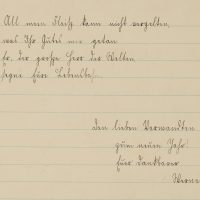 All mein Fleiß kann nicht vergelten,
was Ihr Gutes mir getan
der große Herr der Welten
segne für
den lieben Verwandten
zum neuen Jahr!
Euer dankbarer
Werne